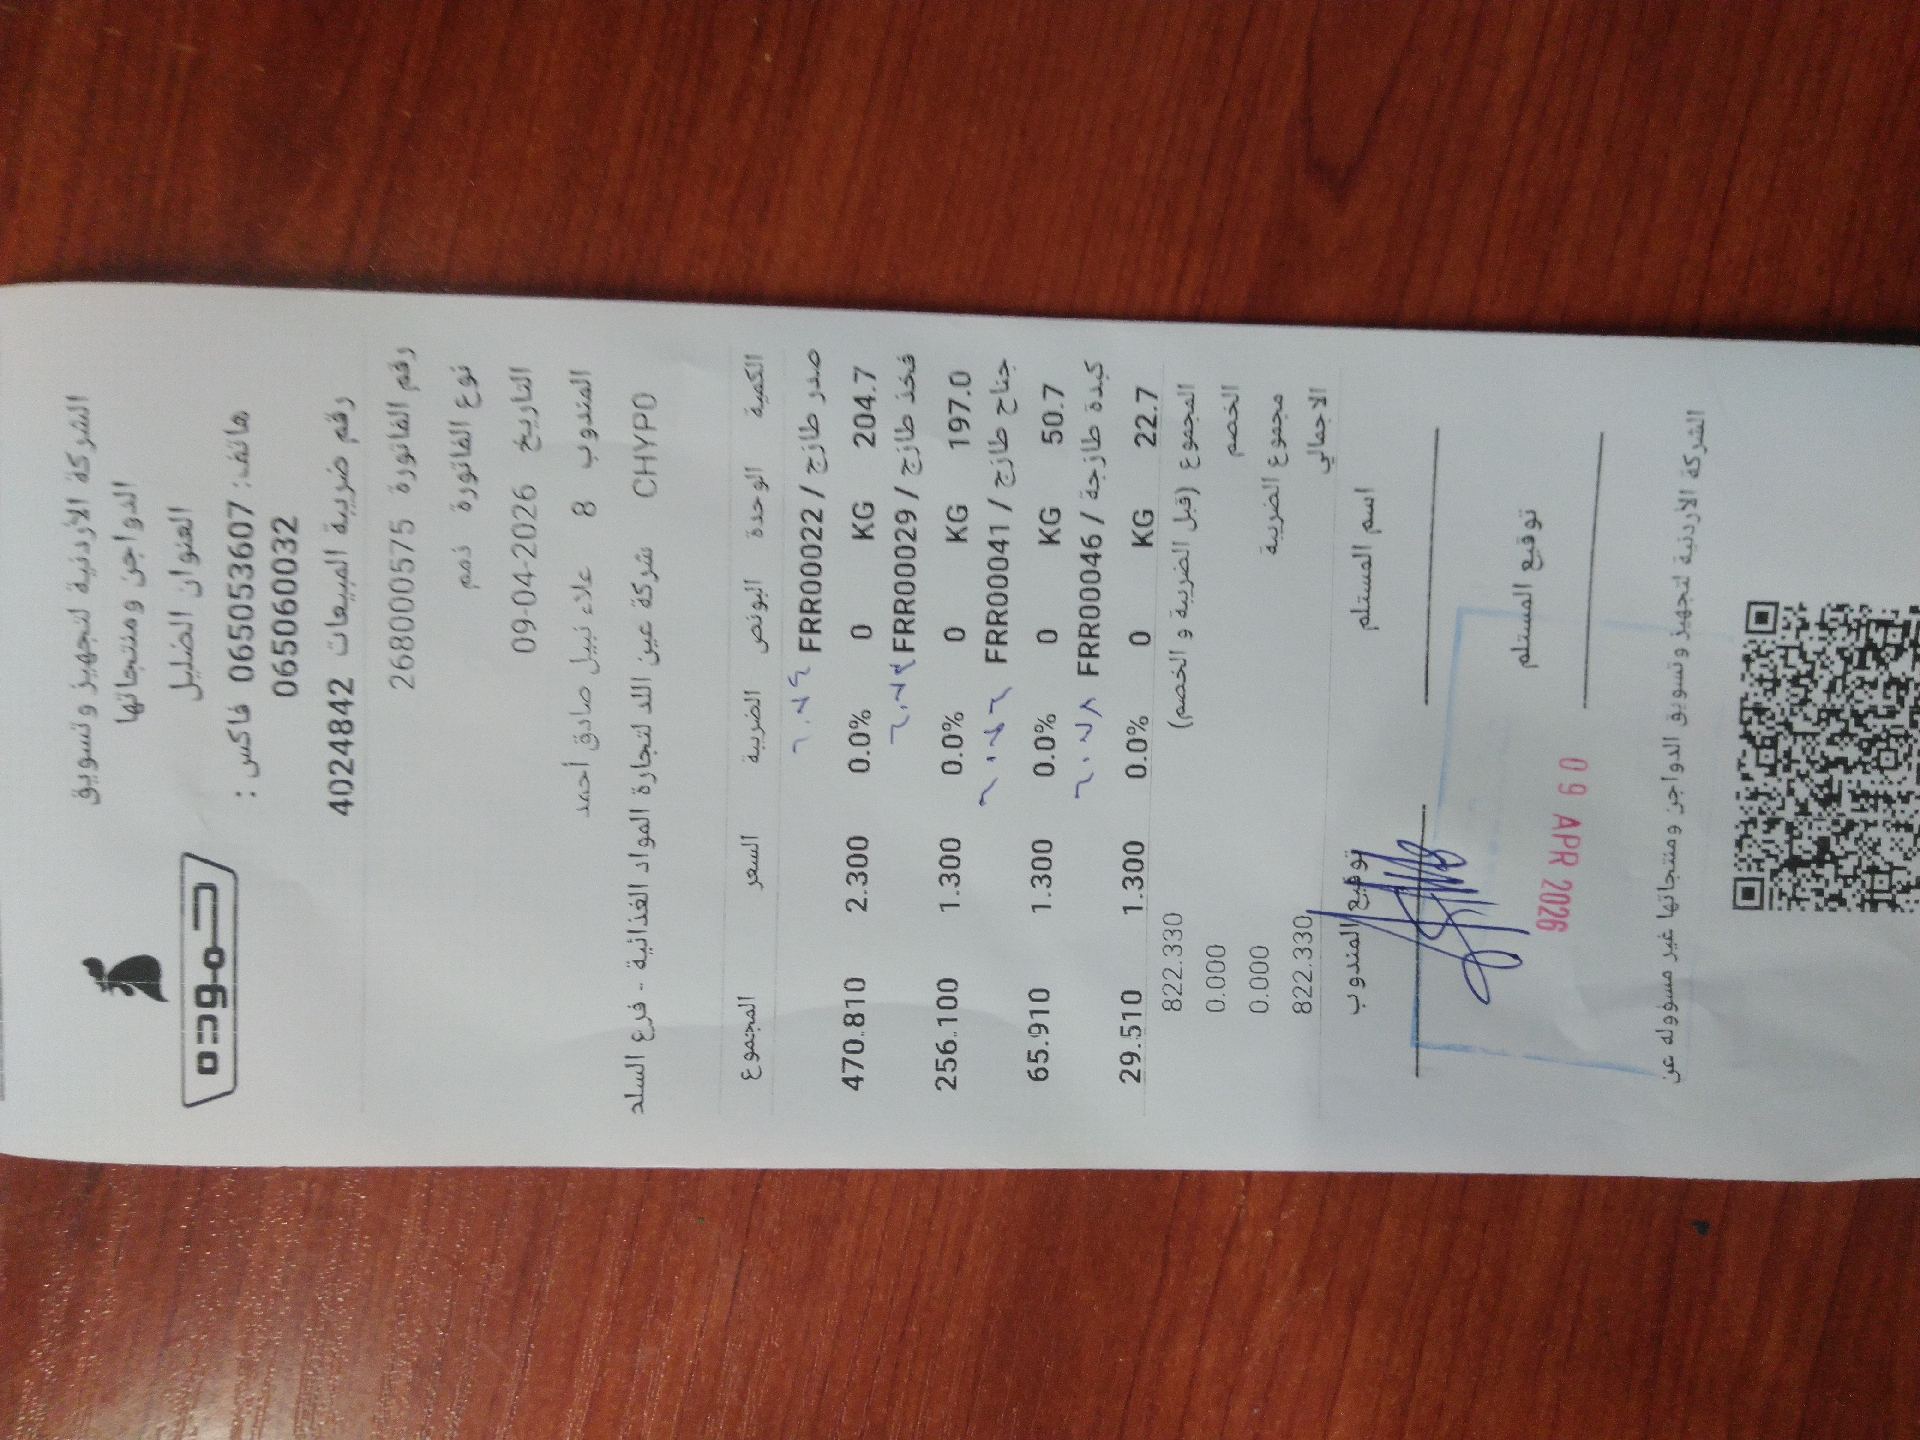 حمودة
الشركة الأردنية لتجهيز وتسويق
الدواجن ومنتجاتها
العنوان الضليل
هاتف: 065053607 فاكس :
065060032
رقم ضريبة المبيعات 4024842
رقم الفاتورة 268000575
نوع الفاتورة ذمم
التاريخ 09-04-2026
المندوب 8 علاء نبيل صادق أحمد
CHYPO شركة عين اللد لتجارة المواد الغذائية - فرع السلد
الكمية الوحدة البونص الضريبة السعر المجموع
صدر طازج / FRR00022 ٦٠٧٩
204.7 KG 0 0.0% 2.300 470.810
فخذ طازج / FRR00029
197.0 KG 0 0.0% 1.300 256.100
جناح طازج / FRR00041
50.7 KG 0 0.0% 1.300 65.910
كبدة طازجة / FRR00046 ٦٠٧٨
22.7 KG 0 0.0% 1.300 29.510
المجموع (قبل الضريبة و الخصم) 822.330
الخصم 0.000
مجموع الضريبة 0.000
الاجمالي 822.330
اسم المستلم توقيع المندوب
توقيع المستلم
09 APR 2026
الشركة الأردنية لتجهيز وتسويق الدواجن ومنتجاتها غير مسؤوله عن